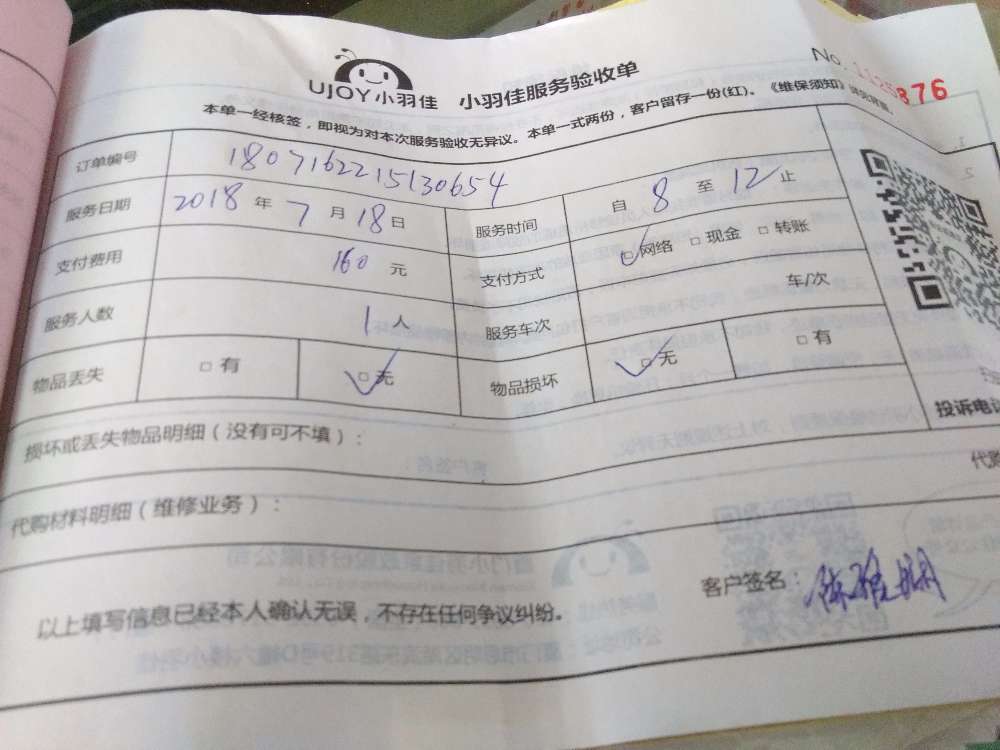 UJOY小羽佳 小羽佳服务验收单 No. 1125876
本单一经核签，即视为对本次服务验收无异议。本单一式两份，客户留存一份(红)。《维保须知》请见背面。
订单编号 180716221513065​4
服务日期 2018 年 7 月 18 日 服务时间 自 8 至 12 止
支付费用 160 元 支付方式 □网络 □现金 □转账
服务人数 1 人 服务车次 车/次
物品丢失 □有 □无 物品损坏 □无 □有
投诉电话
损坏或丢失物品明细（没有可不填）：
代购
代购材料明细（维修业务）：
以上填写信息已经本人确认无误，不存在任何争议纠纷。 客户签名：